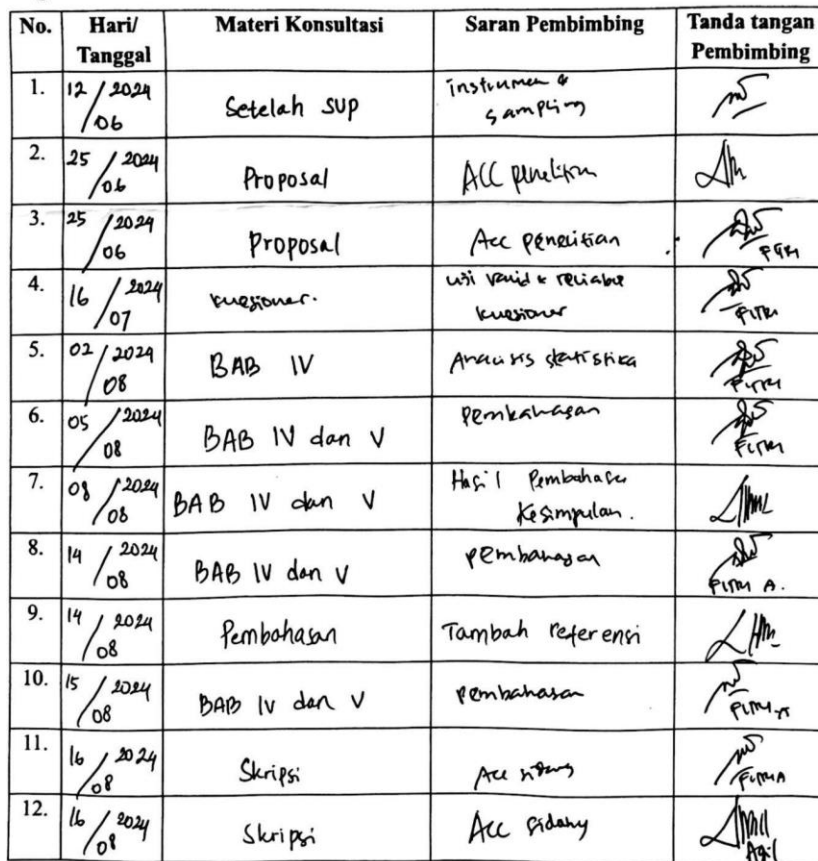 No. Hari/ Tanggal Materi Konsultasi Saran Pembimbing Tanda tangan Pembimbing
1. 12/06 2024 Setelah SUP instrumen & sampling
2. 25/06 2024 Proposal ACC penelitian
3. 25/06 2024 Proposal Acc penelitian FITRI
4. 16/07 2024 kuesioner. uji valid & reliable kuesioner FITRI
5. 02/08 2024 BAB IV Analisis statistika FITRI
6. 05/08 2024 BAB IV dan V pembahasan FITRI
7. 08/08 2024 BAB IV dan V Hasil Pembahasan Kesimpulan.
8. 14/08 2024 BAB IV dan V pembahasan FITRI A.
9. 14/08 2024 Pembahasan Tambah referensi
10. 15/08 2024 BAB IV dan V pembahasan FITRI
11. 16/08 2024 Skripsi Acc sidang FITRI A
12. 16/08 2024 Skripsi Acc sidang